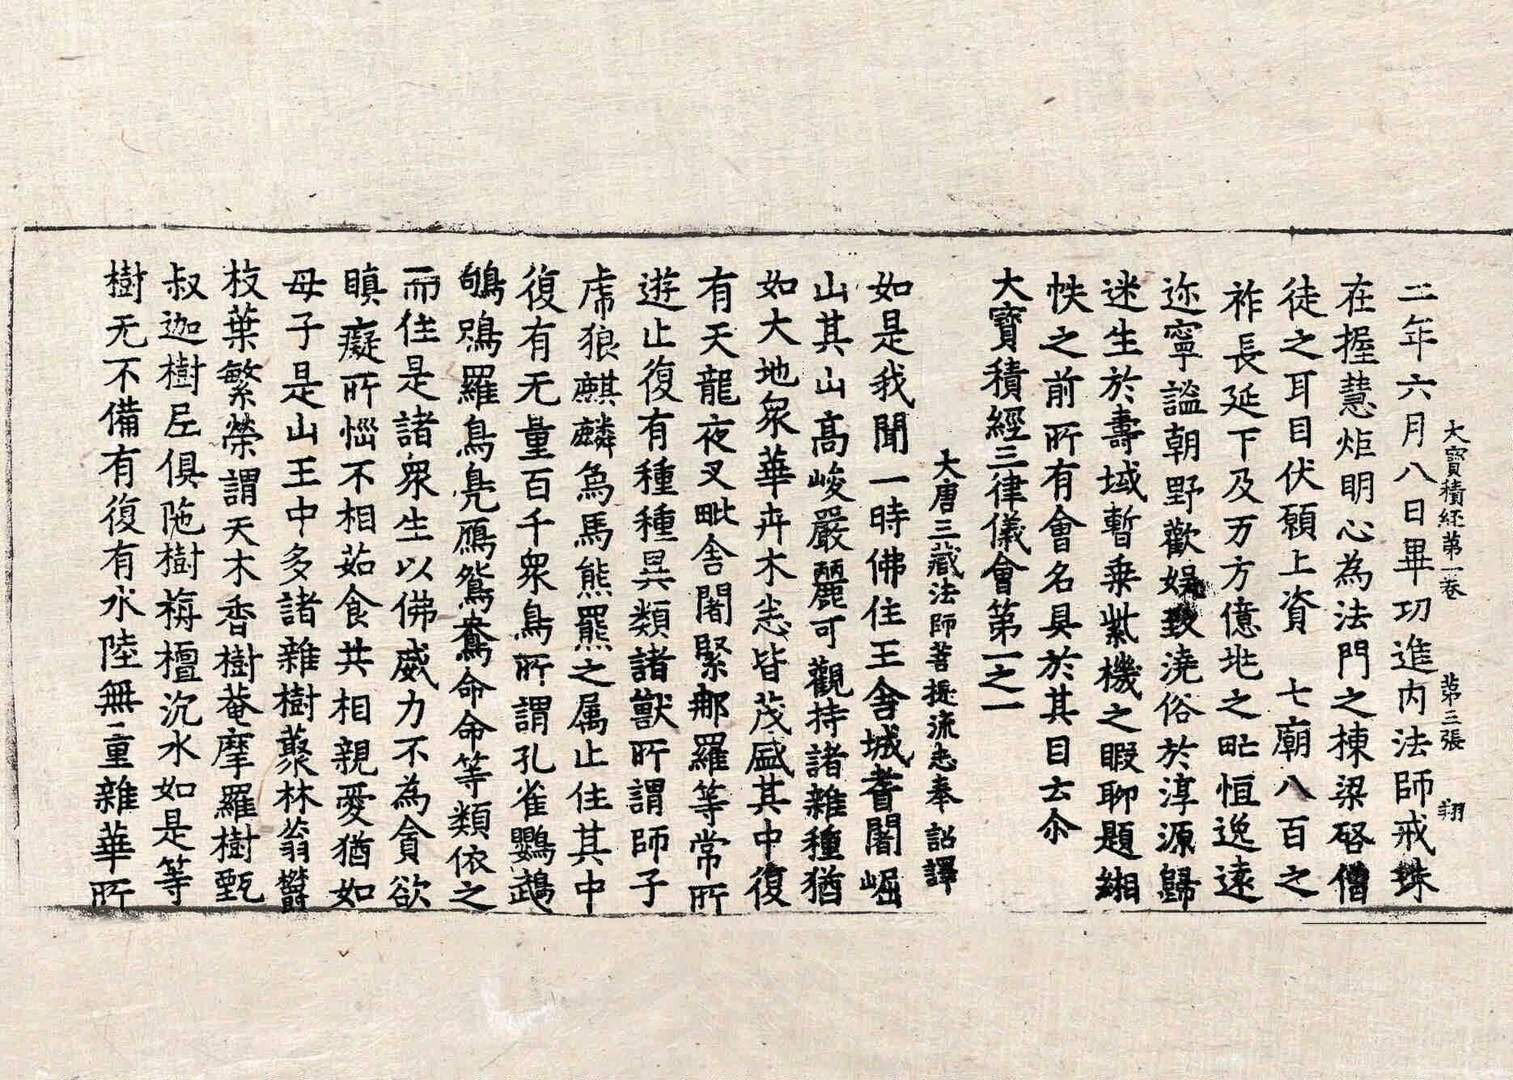 大寶積經第一卷 第三張 翔
二年六月八日畢功進內法師戒珠
在握慧炬明心為法門之棟梁啓僧
徒之耳目伏願上資 七廟八百之
祚長延下及万方億兆之甿恒逸遠
迩寧謐朝野歡娛致澆俗於淳源歸
迷生於壽域暫乗紫機之暇聊題緗
帙之前所有會名具於其目云尒
大寶積經三律儀會第一之一
大唐三藏法師菩提流志奉 詔譯
如是我聞一時佛住王舍城耆闍崛
山其山高峻嚴麗可觀持諸雜種猶
如大地衆華卉木悉皆茂盛其中復
有天龍夜叉毗舍闍緊那羅等常所
遊止復有種種異類諸獸所謂師子
虎狼麒麟爲馬熊羆之属止住其中
復有无量百千衆鳥所謂孔雀鸚鵡
鴝鵒羅鳥凫鴈鴛鴦命命等類依之
而住是諸衆生以佛威力不為貪欲
瞋癡所惱不相茹食共相親愛猶如
母子是山王中多諸雜樹藂林蓊欝
枝葉繁榮謂天木香樹菴摩羅樹甄
叔迦樹尼俱陁樹栴檀沉水如是等
樹无不備有復有水陸無量雜華所